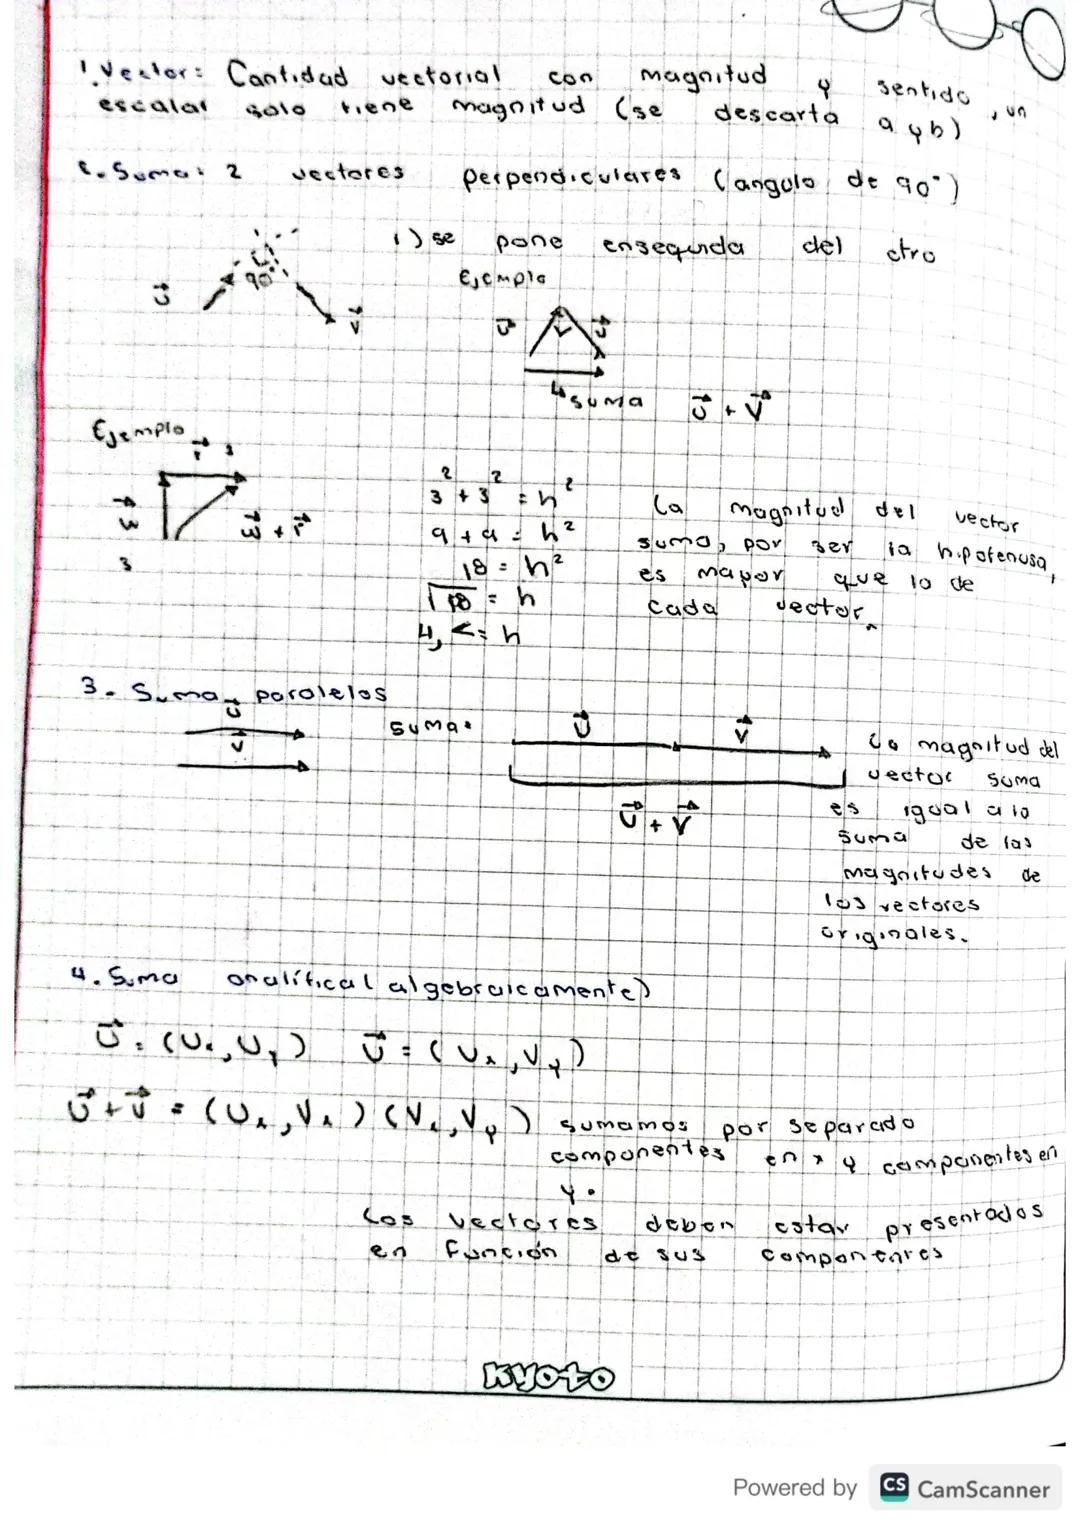 1. Vector: Cantidad vectorial con magnitud y sentido, un
escalar solo tiene magnitud (se descarta a y b)
2. Suma: 2 vectores perpendiculares (angulo de 90°)
1) se pone enseguida del otro
Ejemplo
90°
U
V
U
V
suma U + V
Ejemplo
r 3
3² + 3² = h²
9 + 9 = h²
18 = h²
√18 = h
= h
3
La magnitud del vector
suma, por ser la hipotenusa,
es mayor que lo de
cada vector.
3. Suma paralelos
U
V
suma:
U
V
U + V
La magnitud del
vector suma
es igual a la
suma de las
magnitudes de
los vectores
originales.
4. Suma analítica (algebraicamente)
U = (Ux, Uy) U = (Vx, Vy)
U + V = (Ux, Vx) (Vx, Vy) sumamos por separado
componentes en x y componentes en
y.
Los vectores deben estar presentados
en función de sus componentes
Kyoto
Powered by CS CamScanner